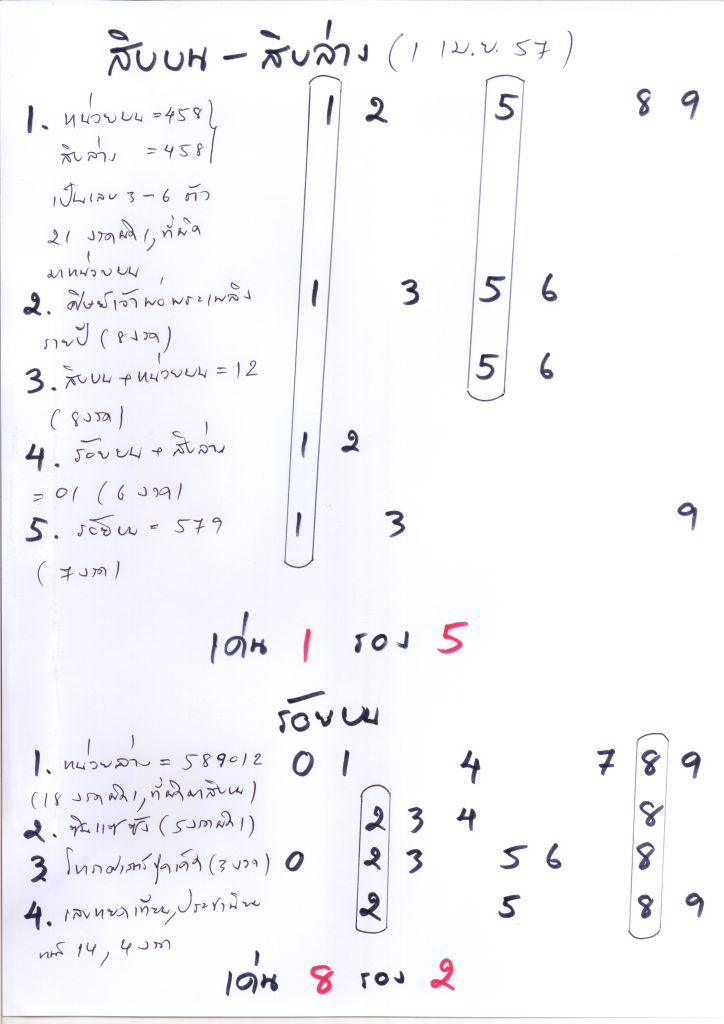 สิบบน - สิบล่าง (1 เม.ย. 57)
1. หน่วยบน = 458 1 2 5 8 9
สิบล่าง = 458
เป็นเลข 3-6 ตัว
21 งวดผิด 1, ที่ผิด
มาหน่วยบน
2. ศิษย์เจ้าพ่อพระเพลิง 1 3 5 6
รายปี (8 งวด)
3. สิบบน + หน่วยบน = 12 5 6
(8 งวด)
4. ร้อยบน + สิบล่าง 1 2
= 01 (6 งวด)
5. ร้อยบน = 579 1 3 9
(7 งวด)
เด่น 1 รอง 5
ร้อยบน
1. หน่วยล่าง = 589012 0 1 4 7 8 9
(18 งวดผิด 1, ที่ผิดมาสิบบน)
2. ซินแซ (5 งวดผิด 1) 2 3 4 8
3 โหราศาสตร์ (3 งวด) 0 2 3 5 6 8
4. เลขหยดเทียน, 2 5 8 9
14, 4 งวด
เด่น 8 รอง 2